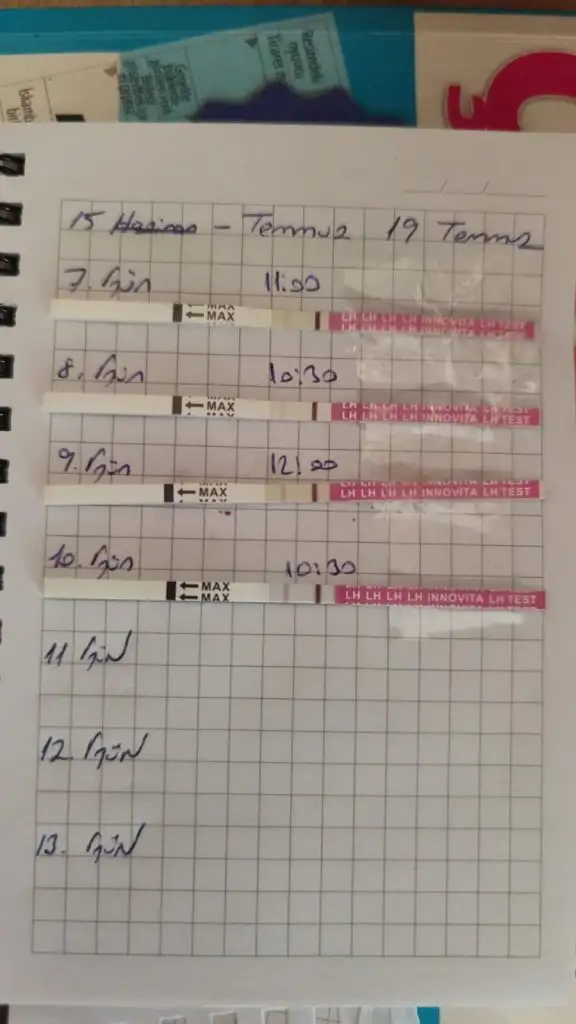 Resimdeki
oyuncu
15 Haziran - Temmuz 19 Temmuz
7. Gün 11:00
MAX
← MAX LH LH LH LH INNOVITA LH TEST
8. Gün 10:30
← MAX LH LH LH LH INNOVITA LH TEST
9. Gün 12:00
← MAX LH LH LH LH INNOVITA LH TEST
10. Gün 10:30
← MAX
← MAX LH LH LH LH INNOVITA LH TEST
11 Gün
12. Gün
13. Gün